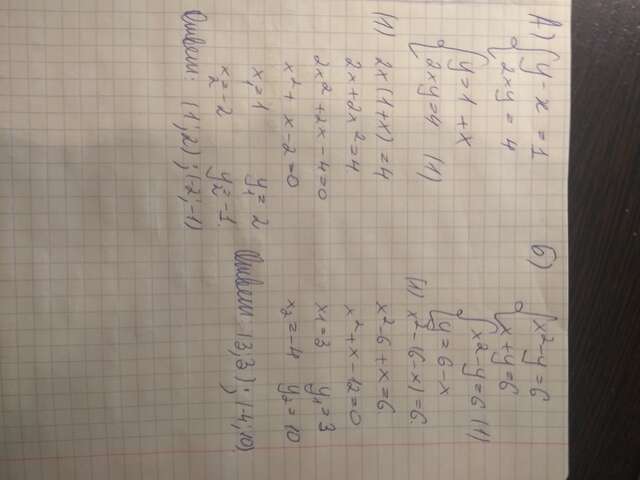 А) { y - x = 1
2xy = 4
{ y = 1 + x
2xy = 4 (1)
(1) 2x(1+x) = 4
2x + 2x² = 4
2x² + 2x - 4 = 0
x² + x - 2 = 0
x₁ = 1 y₁ = 2
x₂ = -2 y₂ = -1
Ответ: (1; 2); (-2; -1)
б) { x² - y = 6
x + y = 6
{ x² - y = 6 (1)
y = 6 - x
(1) x² - (6 - x) = 6
x² - 6 + x = 6
x² + x - 12 = 0
x₁ = 3 y₁ = 3
x₂ = -4 y₂ = 10
Ответ: (3; 3); (-4; 10)